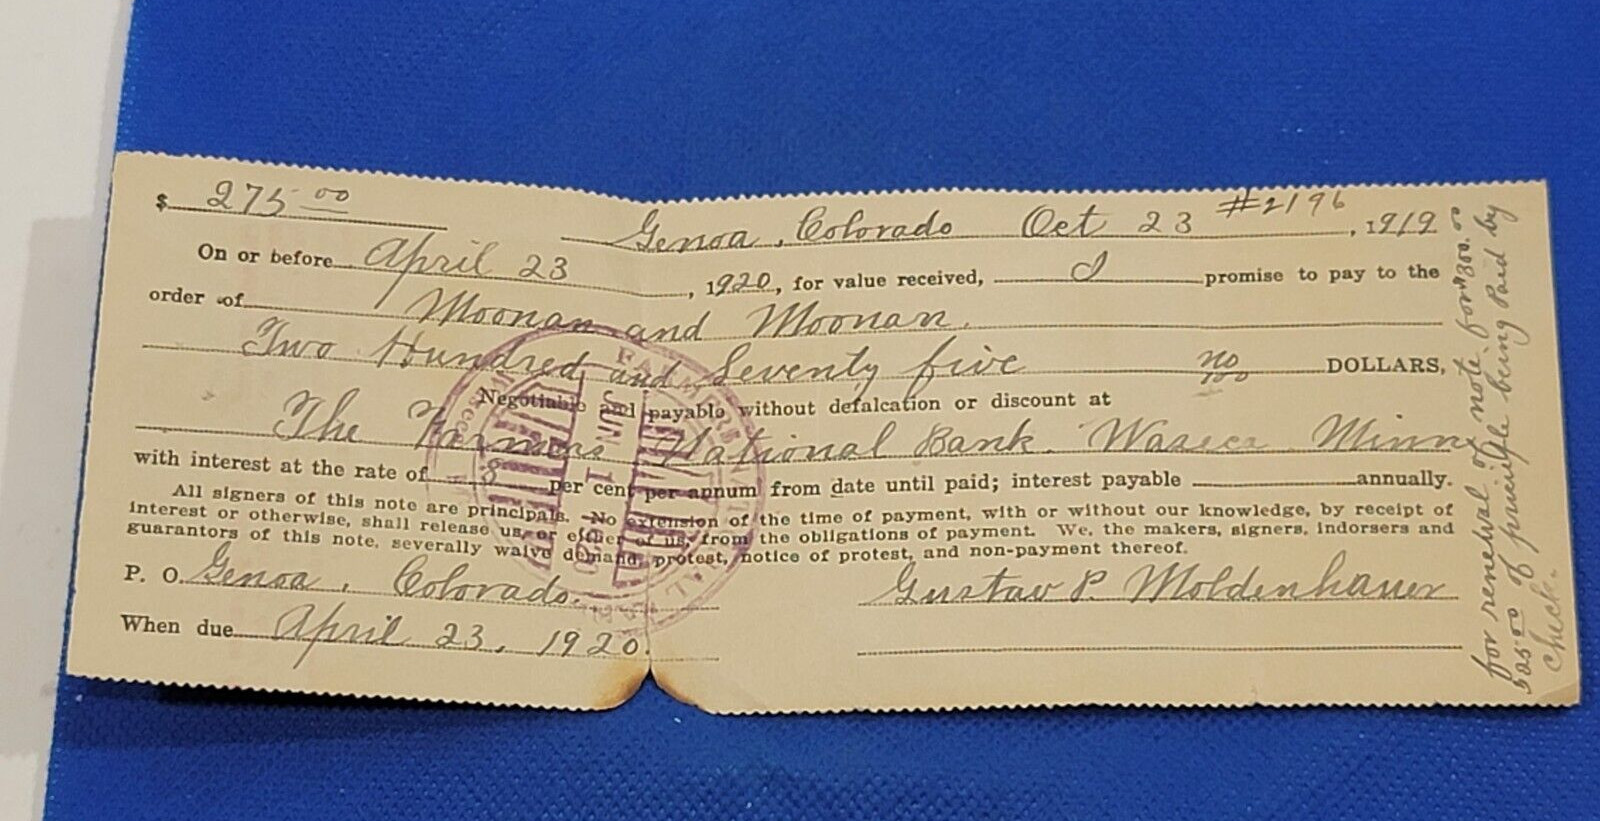 $ 275.00
#2196
Genoa, Colorado Oct 23, 1919
On or before April 23, 1920, for value received, I promise to pay to the
order of Moonan and Moonan.
Two Hundred and Seventy five no/100 DOLLARS,
Negotiable and payable without defalcation or discount at
The Farmers National Bank. Waseca Minn
with interest at the rate of 8 per cent per annum from date until paid; interest payable annually.
All signers of this note are principals. No extension of the time of payment, with or without our knowledge, by receipt of
interest or otherwise, shall release us, or either of us, from the obligations of payment. We, the makers, signers, indorsers and
guarantors of this note, severally waive demand, protest, notice of protest, and non-payment thereof.
P. O. Genoa, Colorado.
Gustav P. Moldenhauer
When due April 23, 1920.
for renewal of note for $300.00
$25.00 of principle being Paid by
Check.
FARMERS NATIONAL
PAID
JUN 1